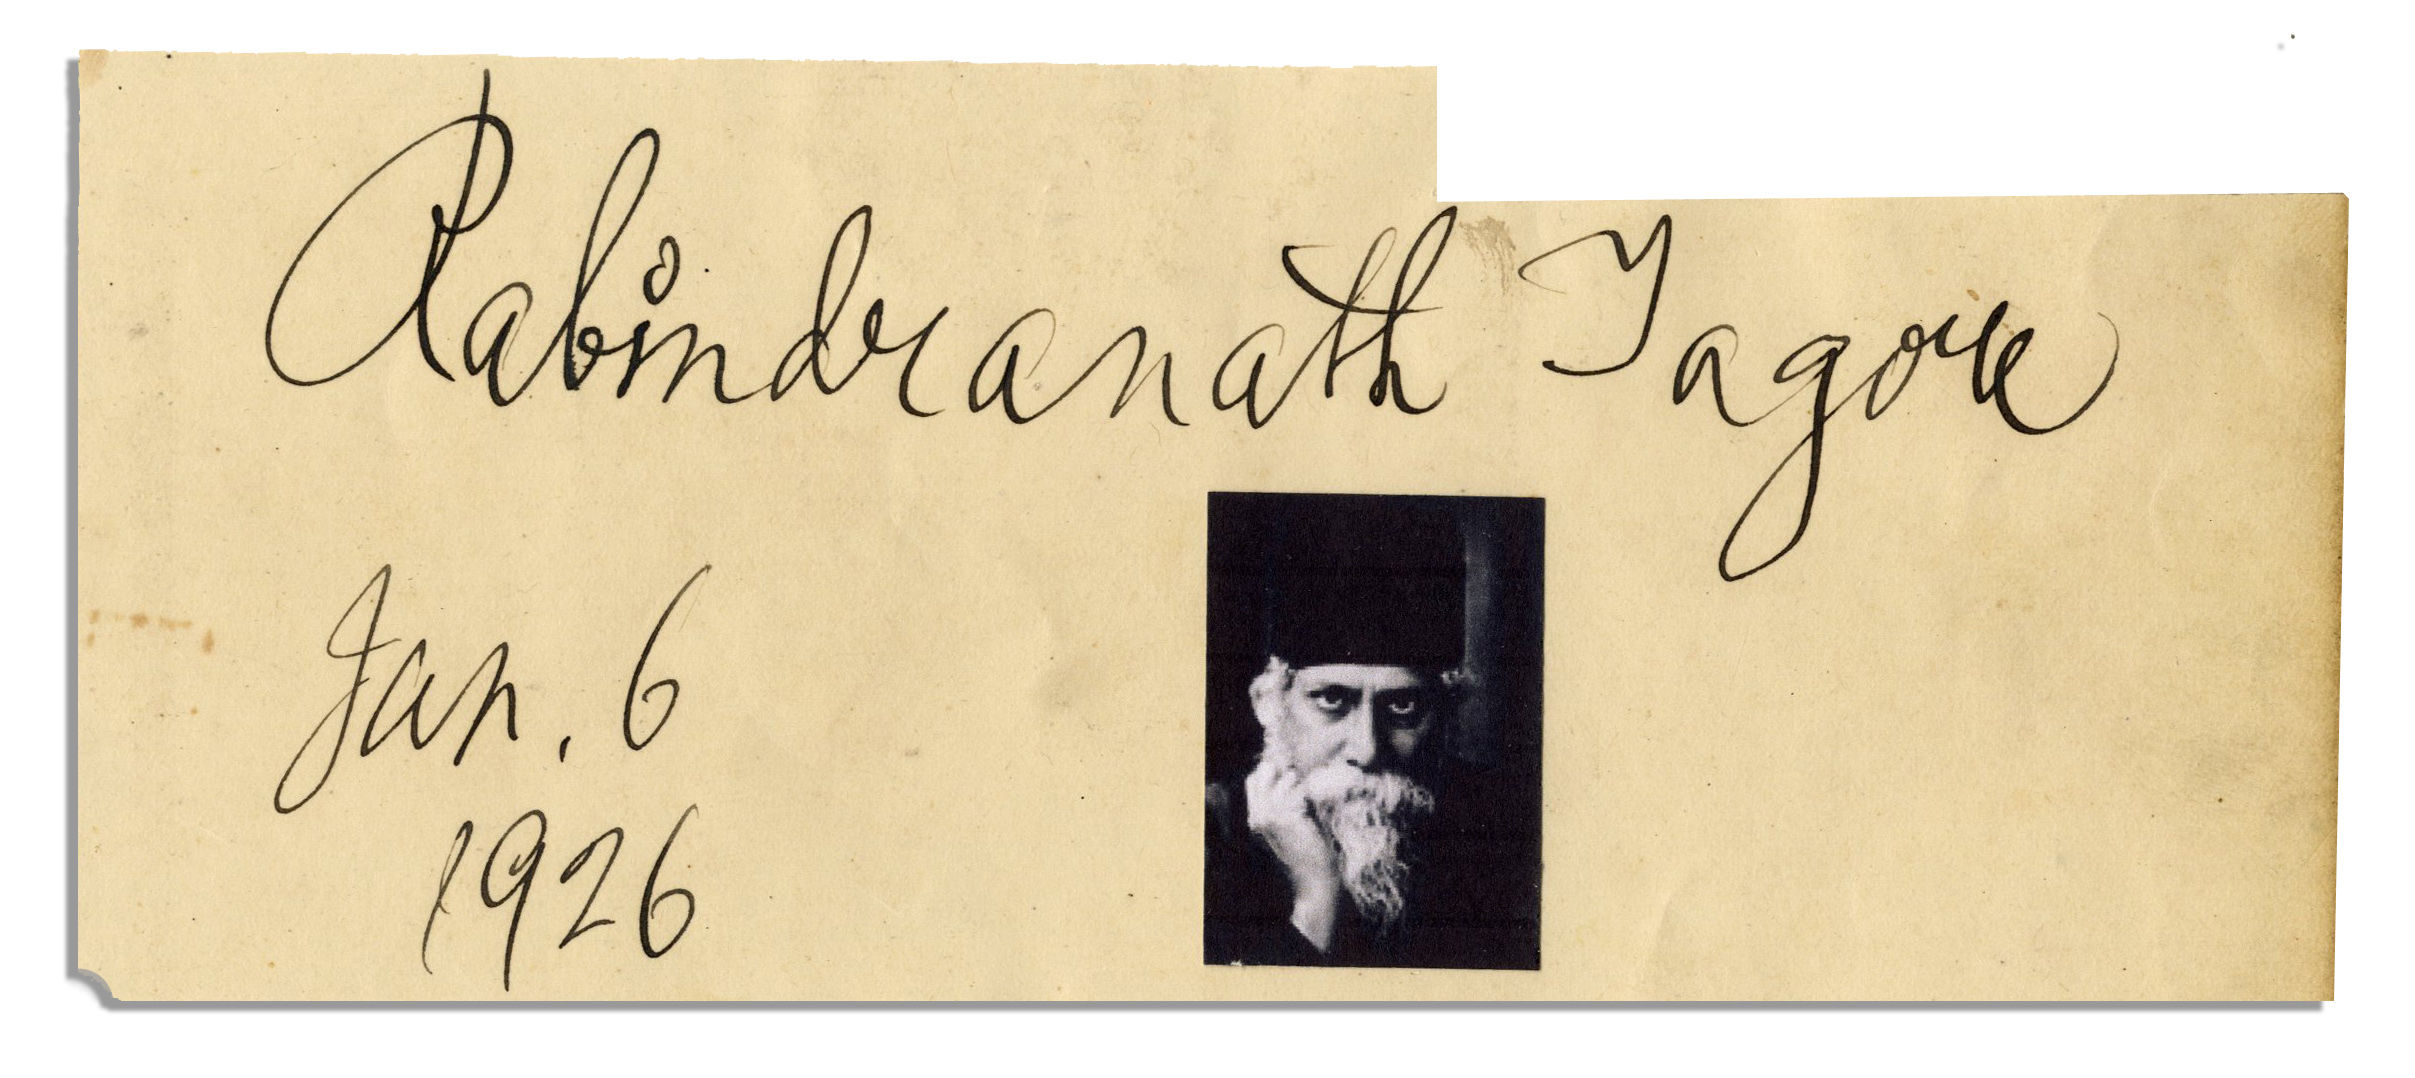 Rabindranath Tagore
Jan. 6
1926